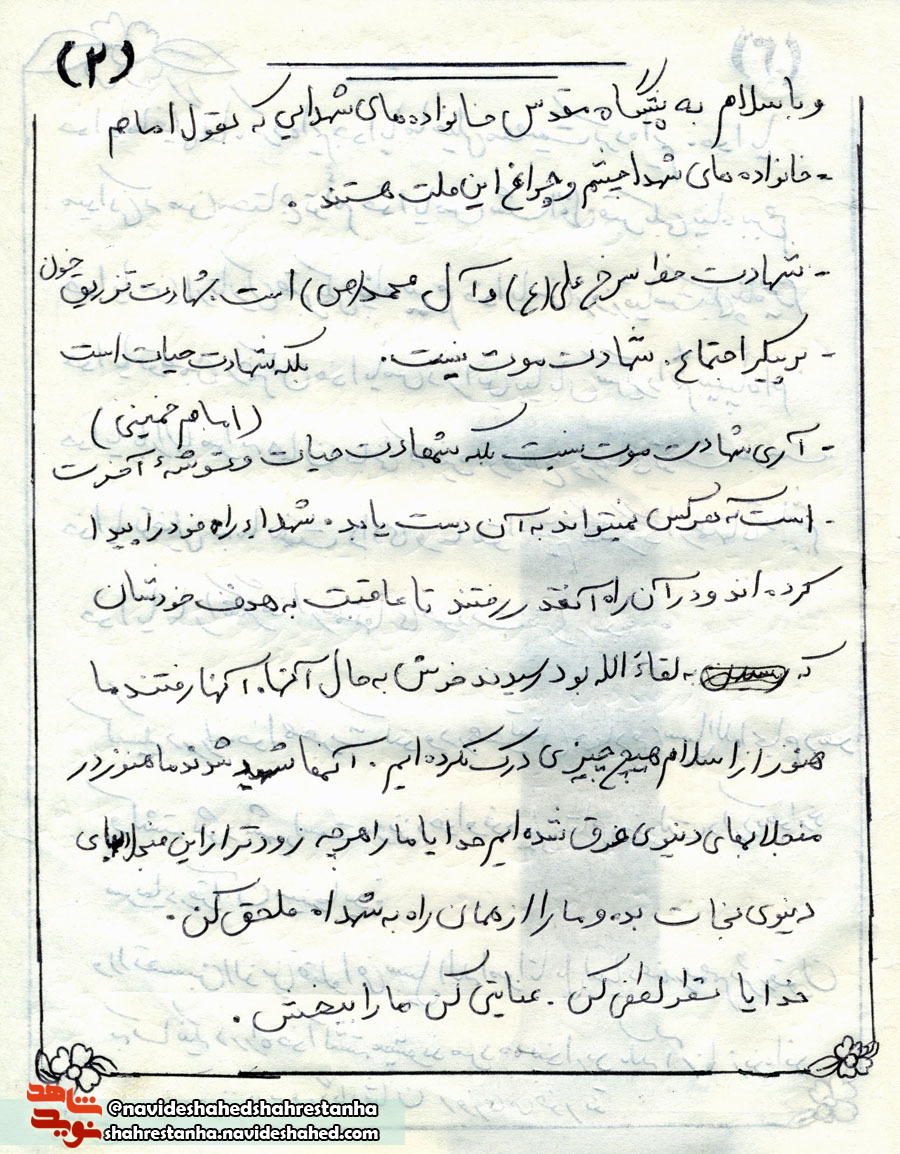 (۲)
و با سلام به پیشگاه مقدس خانواده های شهدایی که بقول امام
- خانواده های شهدا چشم و چراغ این ملت هستند .
- شهادت خط سرخ علی (ع) و آل محمد (ص) است . شهادت تزریق خون
- بر پیکر اجتماع . شهادت موت نیست . بلکه شهادت حیات است
(امام خمینی)
- آری شهادت موت نیست بلکه شهادت حیات و توشۀ آخرت
- است که هر کس نمیتواند به آن دست یابد . شهداء راه خود را پیدا
کرده اند و در آن راه آنقدر رفتند تا عاقبت به هدف خودشان
که به لقاءَ الله بود رسیدند خوش به حال آنها . آنها رفتند ما
هنوز از اسلام هیچ چیزی درک نکرده ایم . آنها شهید شدند ما هنوز در
منجلابهای دنیوی غرق شده ایم خدایا ما را هر چه زودتر از این منجلابهای
دنیوی نجات بده و ما را از همان راه به شهداء ملحق کن .
خدایا لطفی کن . عنایتی کن ما را ببخش .
شاهد
نوید
@navideshahedshahrestanha
shahrestanha.navideshahed.com